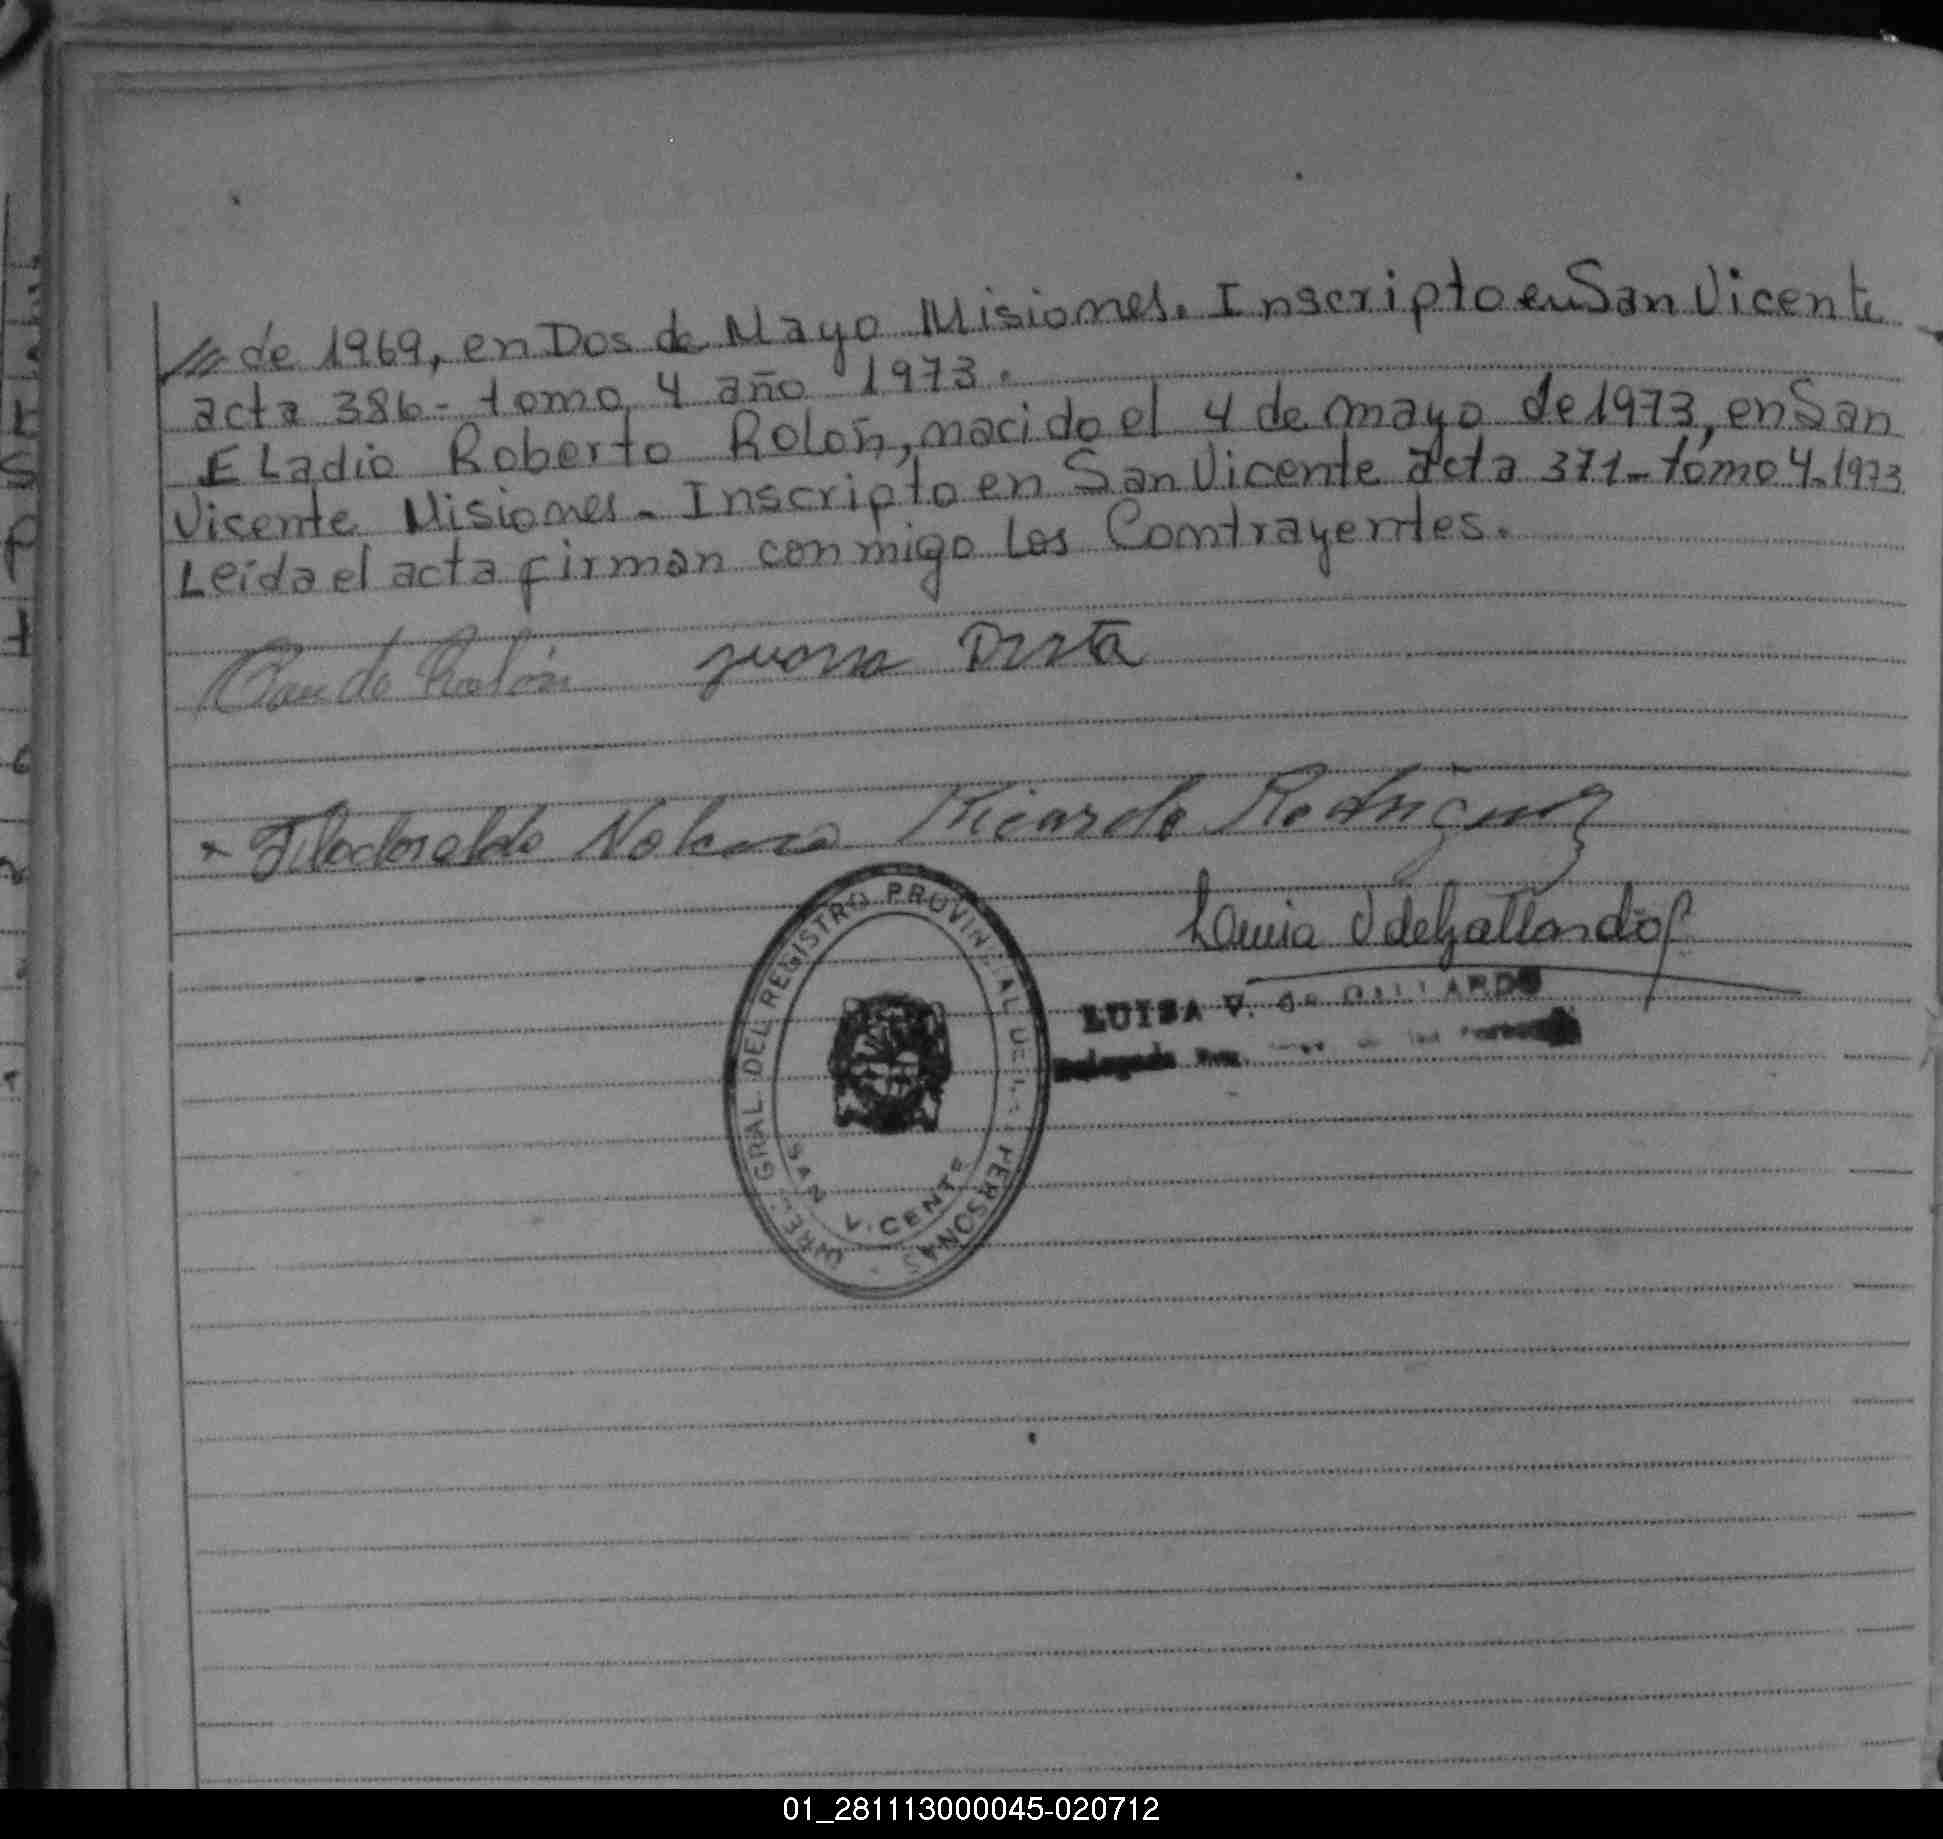 /// de 1969, en Dos de Mayo Misiones. Inscripto en San Vicente
acta 386 - tomo 4 año 1973.
Eladio Roberto Rolón, nacido el 4 de mayo de 1973, en San
Vicente Misiones - Inscripto en San Vicente acta 371 - tomo 4 - 1973
Leída el acta firman conmigo los Contrayentes.
Rolón Juana
Ricardo Rodriguez
Luisa V de Gallardo
LUISA V. de GALLARDO
DIREC. GRAL. DEL REGISTRO PROVINCIAL DE LAS PERSONAS
SAN VICENTE
01_281113000045-020712